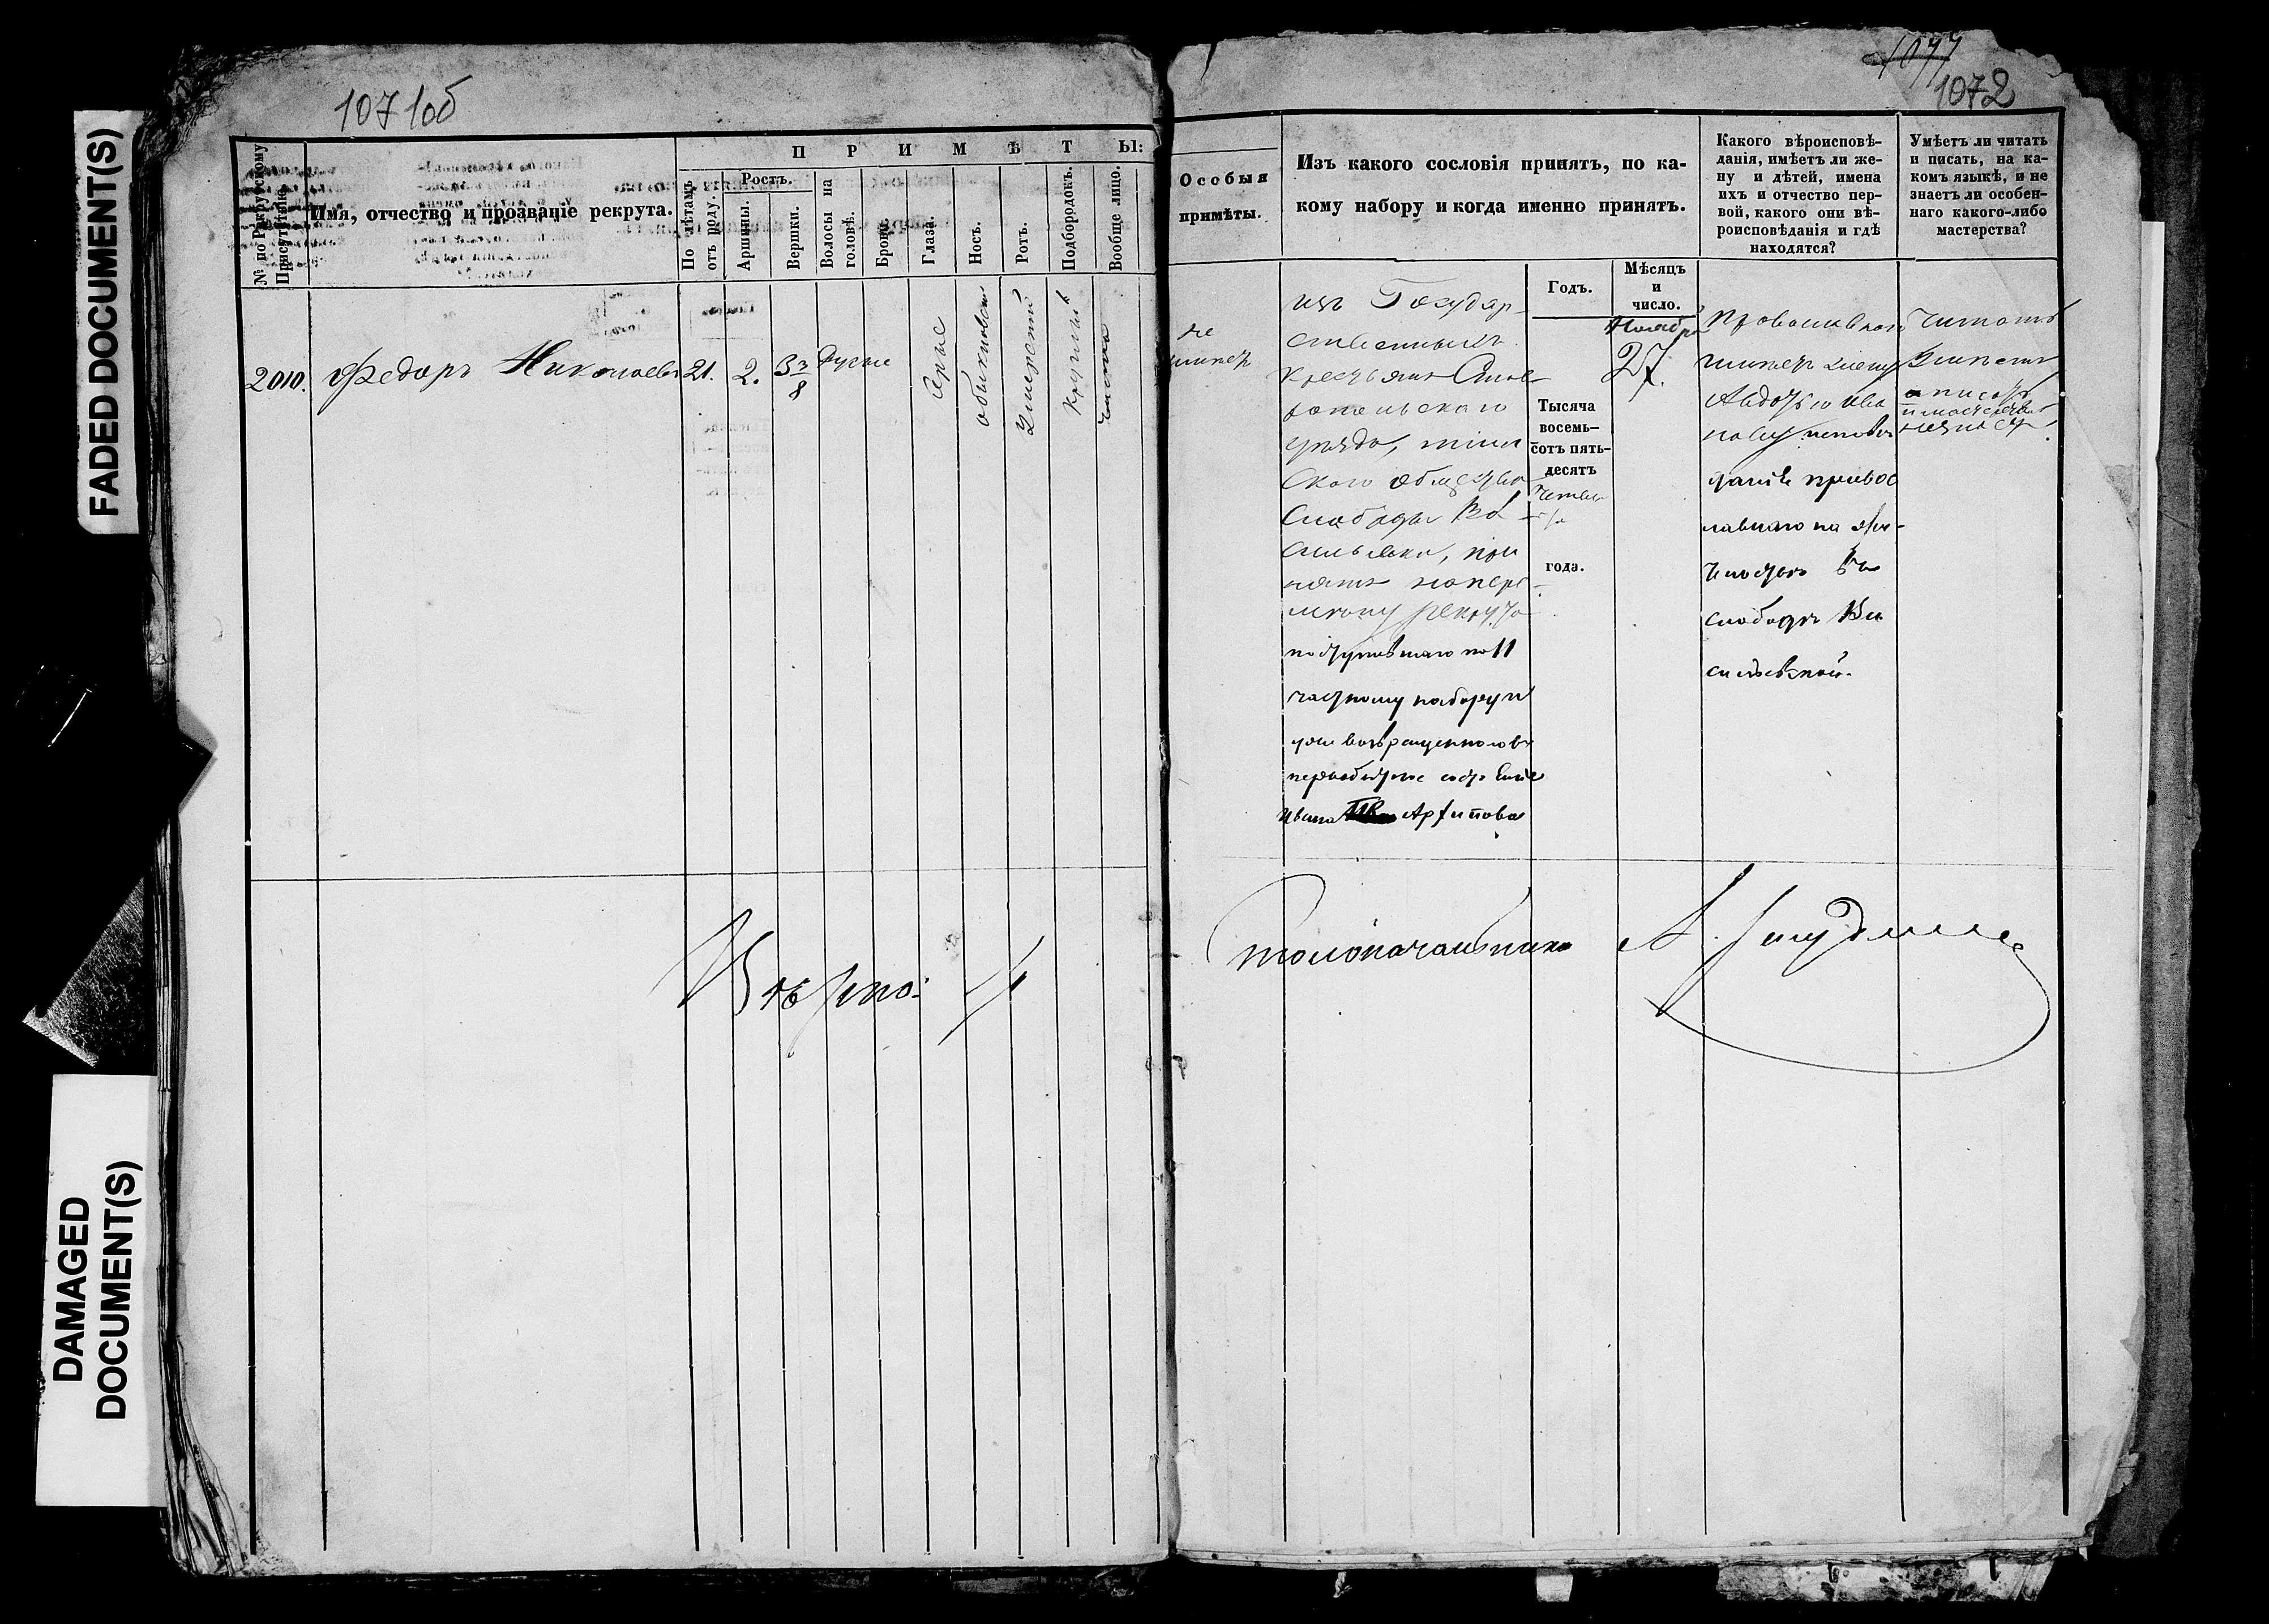 FADED DOCUMENT(S)
DAMAGED
DOCUMENT(S)
1071об
№ по Рекрутскому
Присутствію.
Имя, отчество и прозваніе рекрута.
П Р И М Ѣ Т Ы:
По лѣтамъ
отъ роду.
Ростъ.
Аршины.
Вершки.
Волосы на
головѣ.
Брови.
Глаза.
Носъ.
Ротъ.
Подбородокъ.
Вообще лицо.
2010.
Федоръ Николаевъ
21.
2.
3 3/8
Русые
Сѣрые
обыкновен
Умѣренный
Круглый
чисто
Вѣрно:
1077
1072
Особыя
примѣты.
Изъ какого сословія принятъ, по ка-
кому набору и когда именно принятъ.
Какого вѣроисповѣ-
данія, имѣетъ ли же-
ну и дѣтей, имена
ихъ и отчество пер-
вой, какого они вѣ-
роисповѣданія и гдѣ
находятся?
Умѣетъ ли читать
и писать, на ка-
комъ языкѣ, и не
знаетъ ли особен-
наго какого-либо
мастерства?
Годъ.
Мѣсяцъ
и
число.
не
имѣетъ
изъ Государ-
ственныхъ
крестьянъ Став-
ропольскаго
уѣзда,
скаго общества
Слободы Ва-
сильевки, при
нятъ на пере-
мѣну рекрута
поступившаго по 11
частному набору и
возвращеннаго въ
первобытное состояніе
Ивана Архипова
Тысяча
восемь-
сотъ пять-
десятъ
четвер-
та
года.
Ноября
27.
Православнаго
имѣетъ жену
Авдотью Ива
нову исповѣ
данія правос
лавнаго на жи-
тельствѣ въ
слободѣ Ва
сильевкой.
Читать
Умѣетъ
а писать
и мастерства
не знаетъ.
Столоначальникъ
А.